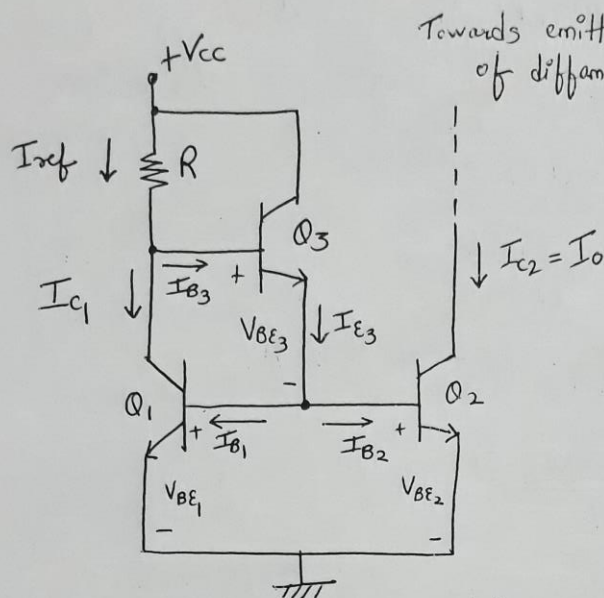 Towards emitt
of diffam
+Vcc
Iref
R
Q3
IC1
IB3
+
VBE3
-
IE3
IC2 = I0
Q1
+
IB1
IB2
+
Q2
VBE1
-
VBE2
-